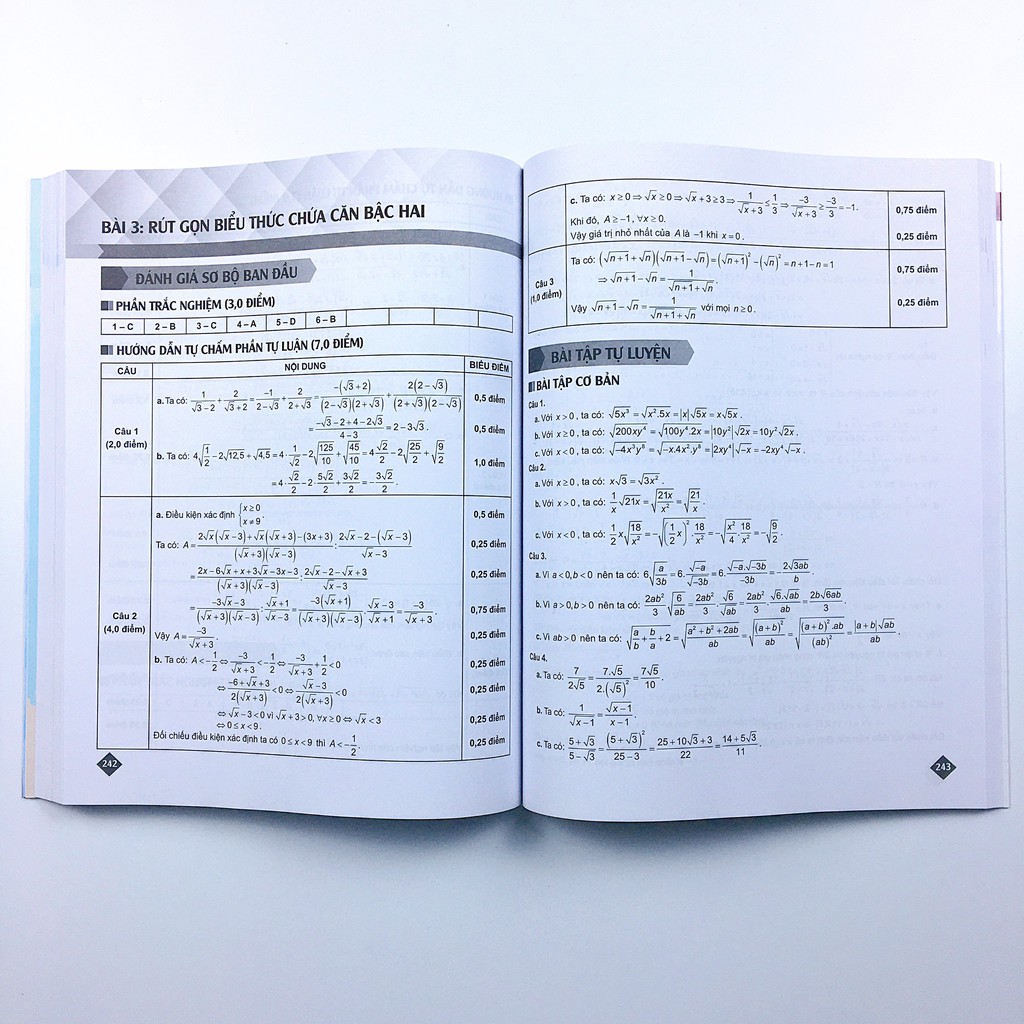 BÀI 3: RÚT GỌN BIỂU THỨC CHỨA CĂN BẬC HAI
ĐÁNH GIÁ SƠ BỘ BAN ĐẦU
PHẦN TRẮC NGHIỆM (3,0 ĐIỂM)
1 – C 2 – B 3 – C 4 – A 5 – D 6 – B
HƯỚNG DẪN TỰ CHẤM PHẦN TỰ LUẬN (7,0 ĐIỂM)
CÂU NỘI DUNG BIỂU ĐIỂM
Câu 1 (2,0 điểm)
a. Ta có: 1/(√3−2) + 2/(√3+2) = −1/(2−√3) + 2/(2+√3) = −(√3+2)/((2−√3)(2+√3)) + 2(2−√3)/((2+√3)(2−√3)) 0,5 điểm
= (−√3−2+4−2√3)/(4−3) = 2−3√3. 0,5 điểm
b. Ta có: 4√(1/2) − 2√12,5 + √4,5 = 4·1/√2 − 2√(125/10) + √(45/10) = 4√2/2 − 2√(25/2) + √(9/2) 1,0 điểm
= 4·√2/2 − 2·5√2/2 + 3√2/2 = −3√2/2.
Câu 2 (4,0 điểm)
a. Điều kiện xác định {x ≥ 0; x ≠ 9. 0,5 điểm
Ta có: A = (2√x(√x−3)+√x(√x+3)−(3x+3))/((√x+3)(√x−3)) : (2√x−2−(√x−3))/(√x−3) 0,25 điểm
= (2x−6√x+x+3√x−3x−3)/((√x+3)(√x−3)) : (2√x−2−√x+3)/(√x−3) 0,25 điểm
= (−3√x−3)/((√x+3)(√x−3)) : (√x+1)/(√x−3) = −3(√x+1)/((√x+3)(√x−3)) · (√x−3)/(√x+1) = −3/(√x+3) 0,75 điểm
Vậy A = −3/(√x+3). 0,25 điểm
b. Ta có: A < −1/2 ⇔ −3/(√x+3) < −1/2 ⇔ −3/(√x+3) + 1/2 < 0 0,25 điểm
⇔ (−6+√x+3)/(2(√x+3)) < 0 ⇔ (√x−3)/(2(√x+3)) < 0 0,25 điểm
⇔ √x−3 < 0 vì √x+3 > 0, ∀x ≥ 0 ⇔ √x < 3 0,25 điểm
⇔ 0 ≤ x < 9.
Đối chiếu điều kiện xác định ta có 0 ≤ x < 9 thì A < −1/2. 0,25 điểm
242
c. Ta có: x ≥ 0 ⇒ √x ≥ 0 ⇒ √x+3 ≥ 3 ⇒ 1/(√x+3) ≤ 1/3 ⇒ −3/(√x+3) ≥ −3/3 = −1. 0,75 điểm
Khi đó, A ≥ −1, ∀x ≥ 0.
Vậy giá trị nhỏ nhất của A là −1 khi x = 0. 0,25 điểm
Câu 3 (1,0 điểm)
Ta có: (√(n+1)+√n)(√(n+1)−√n) = (√(n+1))² − (√n)² = n+1−n = 1 0,75 điểm
⇒ √(n+1)−√n = 1/(√(n+1)+√n).
Vậy √(n+1)−√n = 1/(√(n+1)+√n) với mọi n ≥ 0. 0,25 điểm
BÀI TẬP TỰ LUYỆN
BÀI TẬP CƠ BẢN
Câu 1.
a. Với x > 0, ta có: √(5x³) = √(x².5x) = |x|√(5x) = x√(5x).
b. Với x ≥ 0, ta có: √(200xy⁴) = √(100y⁴.2x) = |10y²|√(2x) = 10y²√(2x).
c. Với x < 0, ta có: √(−4x³y⁸) = √(−x.4x².y⁸) = |2xy⁴|√(−x) = −2xy⁴√(−x).
Câu 2.
a. Với x ≥ 0, ta có: x√3 = √(3x²).
b. Với x > 0, ta có: 1/x √(21x) = √(21x/x²) = √(21/x).
c. Với x < 0, ta có: 1/2 x√(18/x²) = −√((1/2 x)²·18/x²) = −√(x²/4·18/x²) = −√(9/2).
Câu 3.
a. Vì a < 0, b < 0 nên ta có: 6√(a/3b) = 6.√(−a)/√(−3b) = 6.√(−a).√(−3b)/(−3b) = −2√(3ab)/b.
b. Vì a > 0, b > 0 nên ta có: 2ab²/3 √(6/ab) = 2ab²/3 · √6/√(ab) = 2ab²/3 · √6.√(ab)/ab = 2b√(6ab)/3.
c. Vì ab > 0 nên ta có: √(a/b + b/a + 2) = √((a²+b²+2ab)/ab) = √((a+b)²/ab) = √((a+b)².ab/(ab)²) = |a+b|√(ab)/ab.
Câu 4.
a. Ta có: 7/(2√5) = 7.√5/(2.(√5)²) = 7√5/10.
b. Ta có: 1/√(x−1) = √(x−1)/(x−1).
c. Ta có: (5+√3)/(5−√3) = (5+√3)²/(25−3) = (25+10√3+3)/22 = (14+5√3)/11.
243